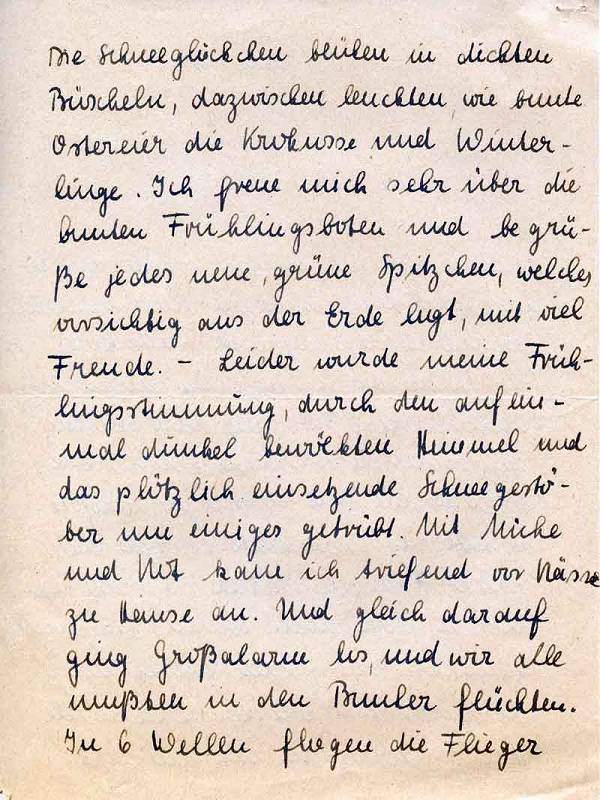 Die Schneeglöckchen blühen in dichten
Büscheln, dazwischen leuchten, wie bunte
Ostereier die Krokusse und Winter-
linge. Ich freue mich sehr über die
bunten Frühlingsboten und begrü-
ße jedes neue, grüne Spitzchen, welches
vorsichtig aus der Erde lugt, mit viel
Freude. – Leider wurde meine Früh-
lingsstimmung, durch den auf ein-
mal dunkel bewölkten Himmel und
das plötzlich einsetzende Schneegestö-
ber um einiges getrübt. Mit Mühe
und Not kam ich triefend vor Nässe
zu Hause an. Und gleich darauf
ging Großalarm los, und wir alle
mußten in den Bunker flüchten.
In 6 Wellen flogen die Flieger